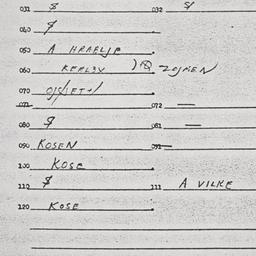 031 $ 032 $
040 $
050 A HRAELJE
060 KEALBV ZOJMEN
070
071 072 —
080 $ 081 —
090 KOSEN 091 —
100 KOSE
110 $ 111 A VILKE
120 KOSE